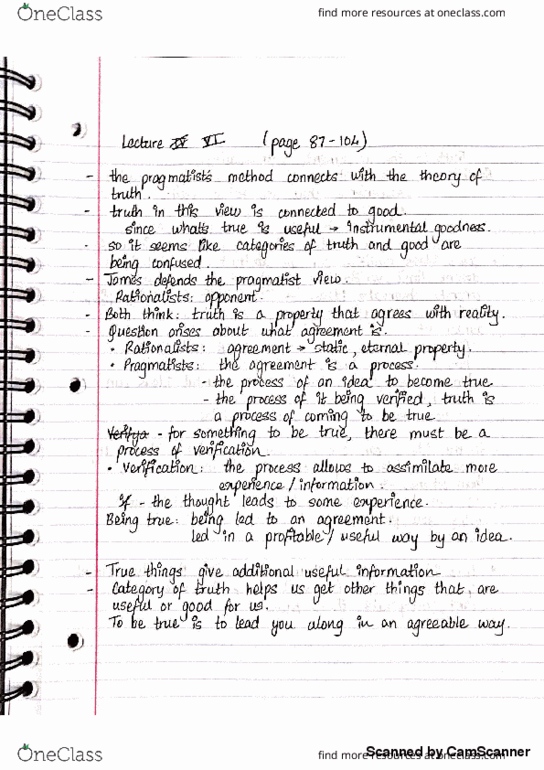 OneClass
find more resources at oneclass.com
Lecture IV VI (page 87-104)
- the pragmatists method connects with the theory of
truth.
- truth in this view is connected to good.
since whats true is useful → instrumental goodness.
- so it seems like categories of truth and good are
being confused.
- James defends the pragmatist view.
Rationalists: opponent.
- Both think: truth is a property that agrees with reality.
- Question arises about what agreement is.
• Rationalists: agreement → static, eternal property.
• Pragmatists: the agreement is a process.
- the process of an idea to become true
- the process of it being verified, truth is
a process of coming to be true.
- for something to be true, there must be a
process of verification.
• Verification: the process allows to assimilate more
experience/information.
If - the thought leads to some experience.
Being true: being led to an agreement.
led in a profitable/useful way by an idea.
- True things give additional useful information
- Category of truth helps us get other things that are
useful or good for us.
To be true is to lead you along in an agreeable way.
OneClass
find more resources at oneclass.com
Scanned by CamScanner